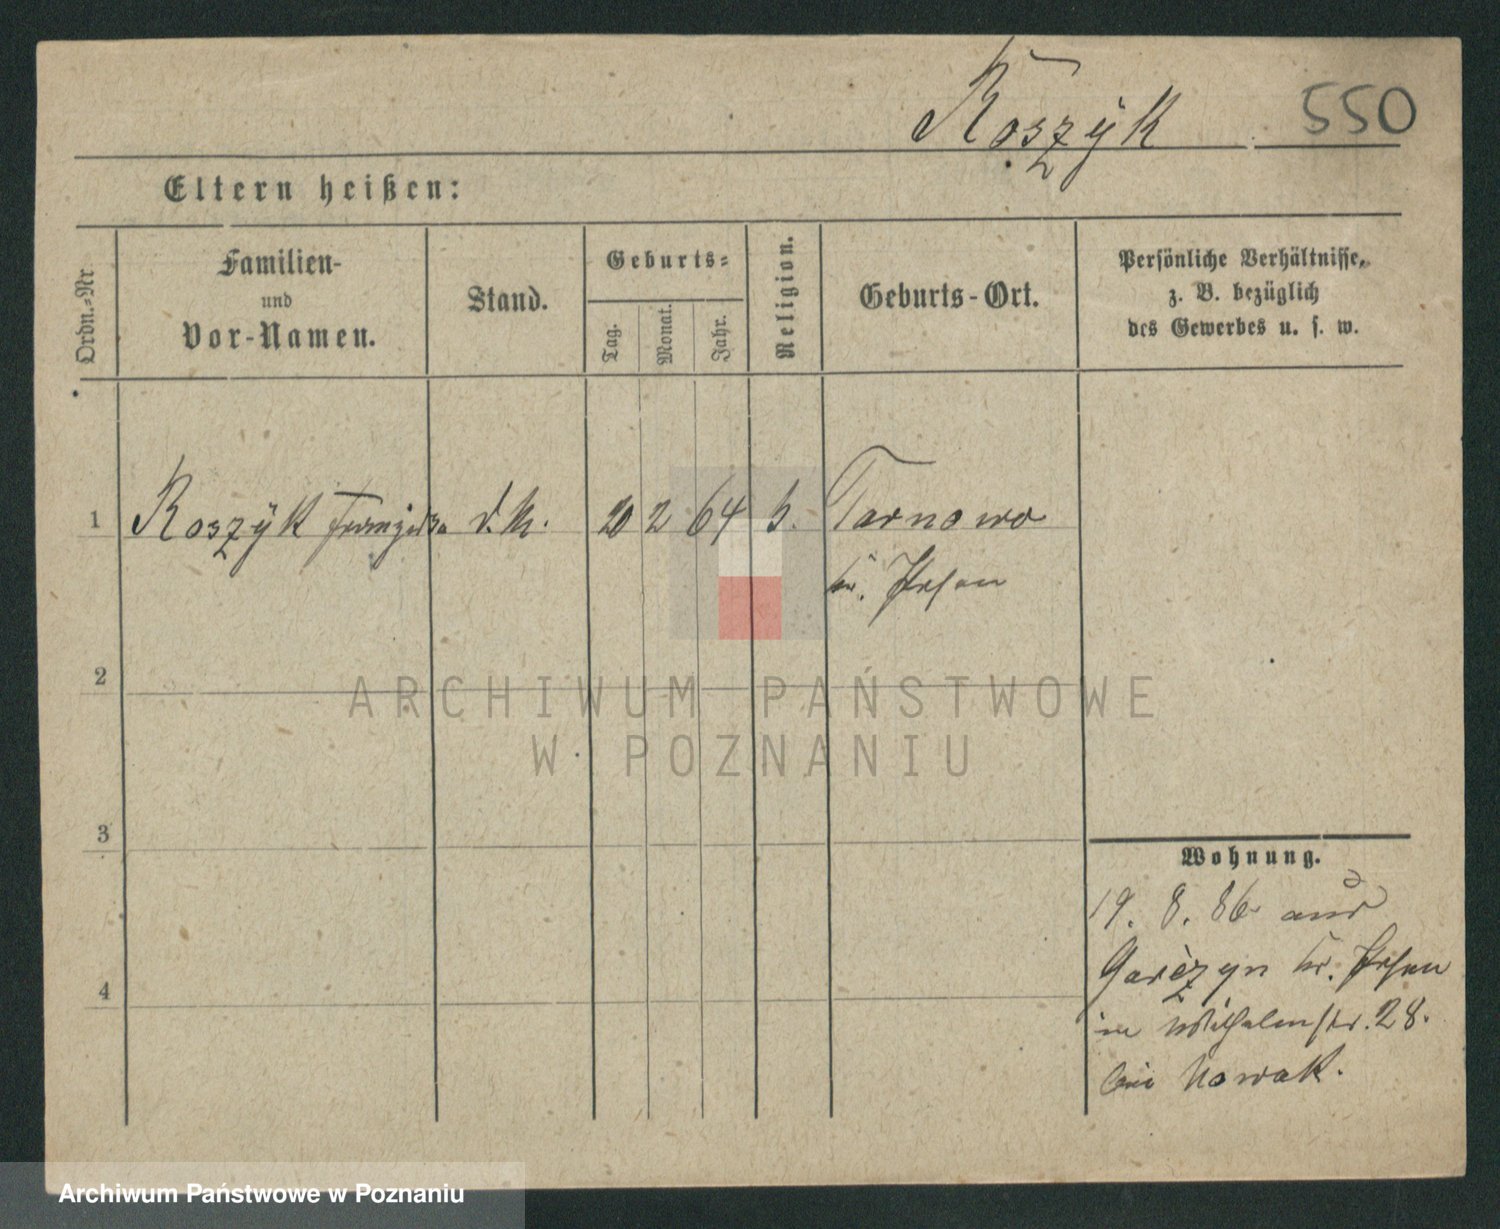 Roszÿk 550
Eltern heißen:
Ordn.-Nr
Familien-
und
Vor-Namen.
Stand.
Geburts-
Tag.
Monat.
Jahr.
Religion.
Geburts-Ort.
Persönliche Verhältnisse,
z. B. bezüglich
des Gewerbes u. s. w.
1 Roszÿk Franziska d. M. 20 2 64 k. Tarnowo
Kr. Posen
2
3
4
Wohnung.
19. 8. 86 aus
Garczyn Kr. Posen
in Wilhelmstr. 28.
bei Nowak.
ARCHIWUM PAŃSTWOWE
W POZNANIU
Archiwum Państwowe w Poznaniu